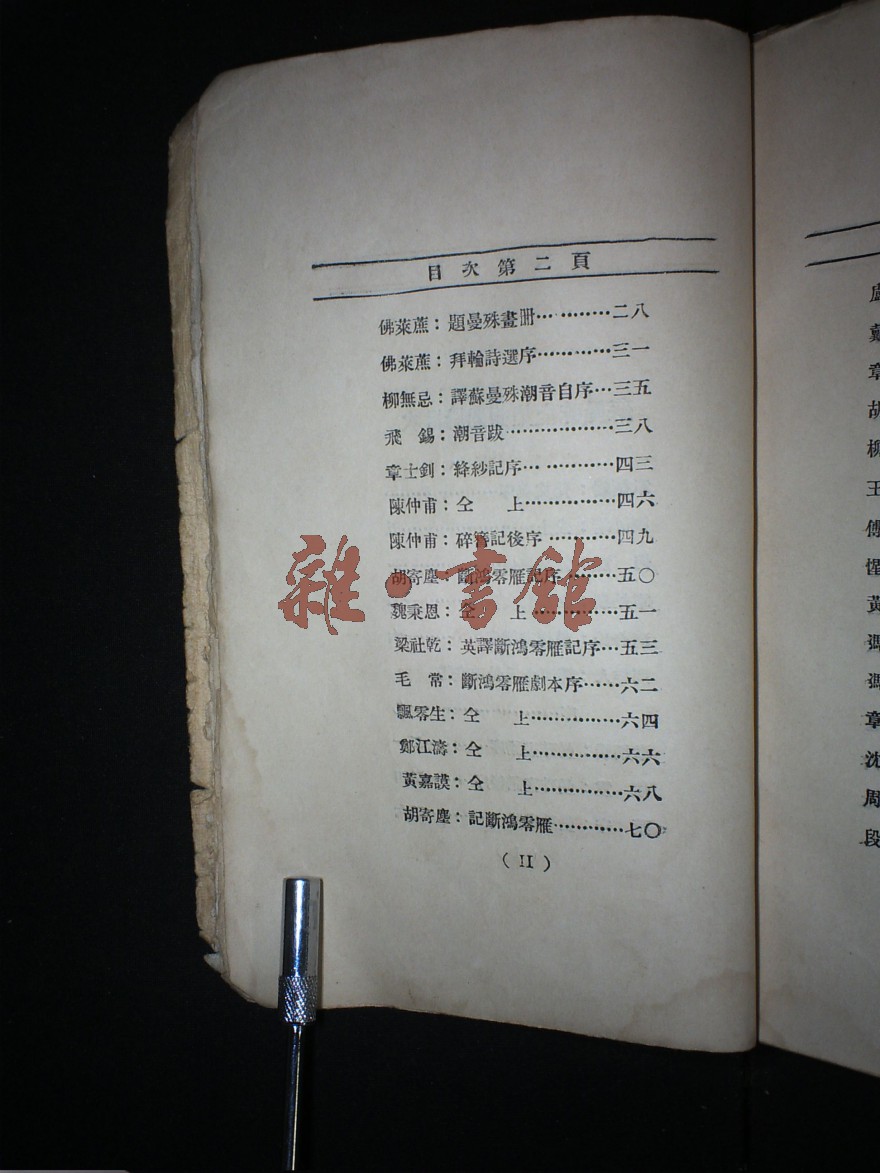 目次第二頁
佛萊蔗：題曼殊畫冊…………二八
佛萊蔗：拜輪詩選序…………三一
柳無忌：譯蘇曼殊潮音自序…三五
飛　錫：潮音跋………………三八
章士釗：絳紗記序……………四三
陳仲甫：仝　上………………四六
陳仲甫：碎簪記後序…………四九
胡寄塵：斷鴻零雁記序………五〇
魏秉恩：仝　上………………五一
梁社乾：英譯斷鴻零雁記序…五三
毛　常：斷鴻零雁劇本序……六二
飄零生：仝　上………………六四
鄭江濤：仝　上………………六六
黃嘉謨：仝　上………………六八
胡寄塵：記斷鴻零雁…………七〇
(II)
雜·書館
戴
章
胡
柳
王
傅
黃
馮
馮
章
沈
周
段